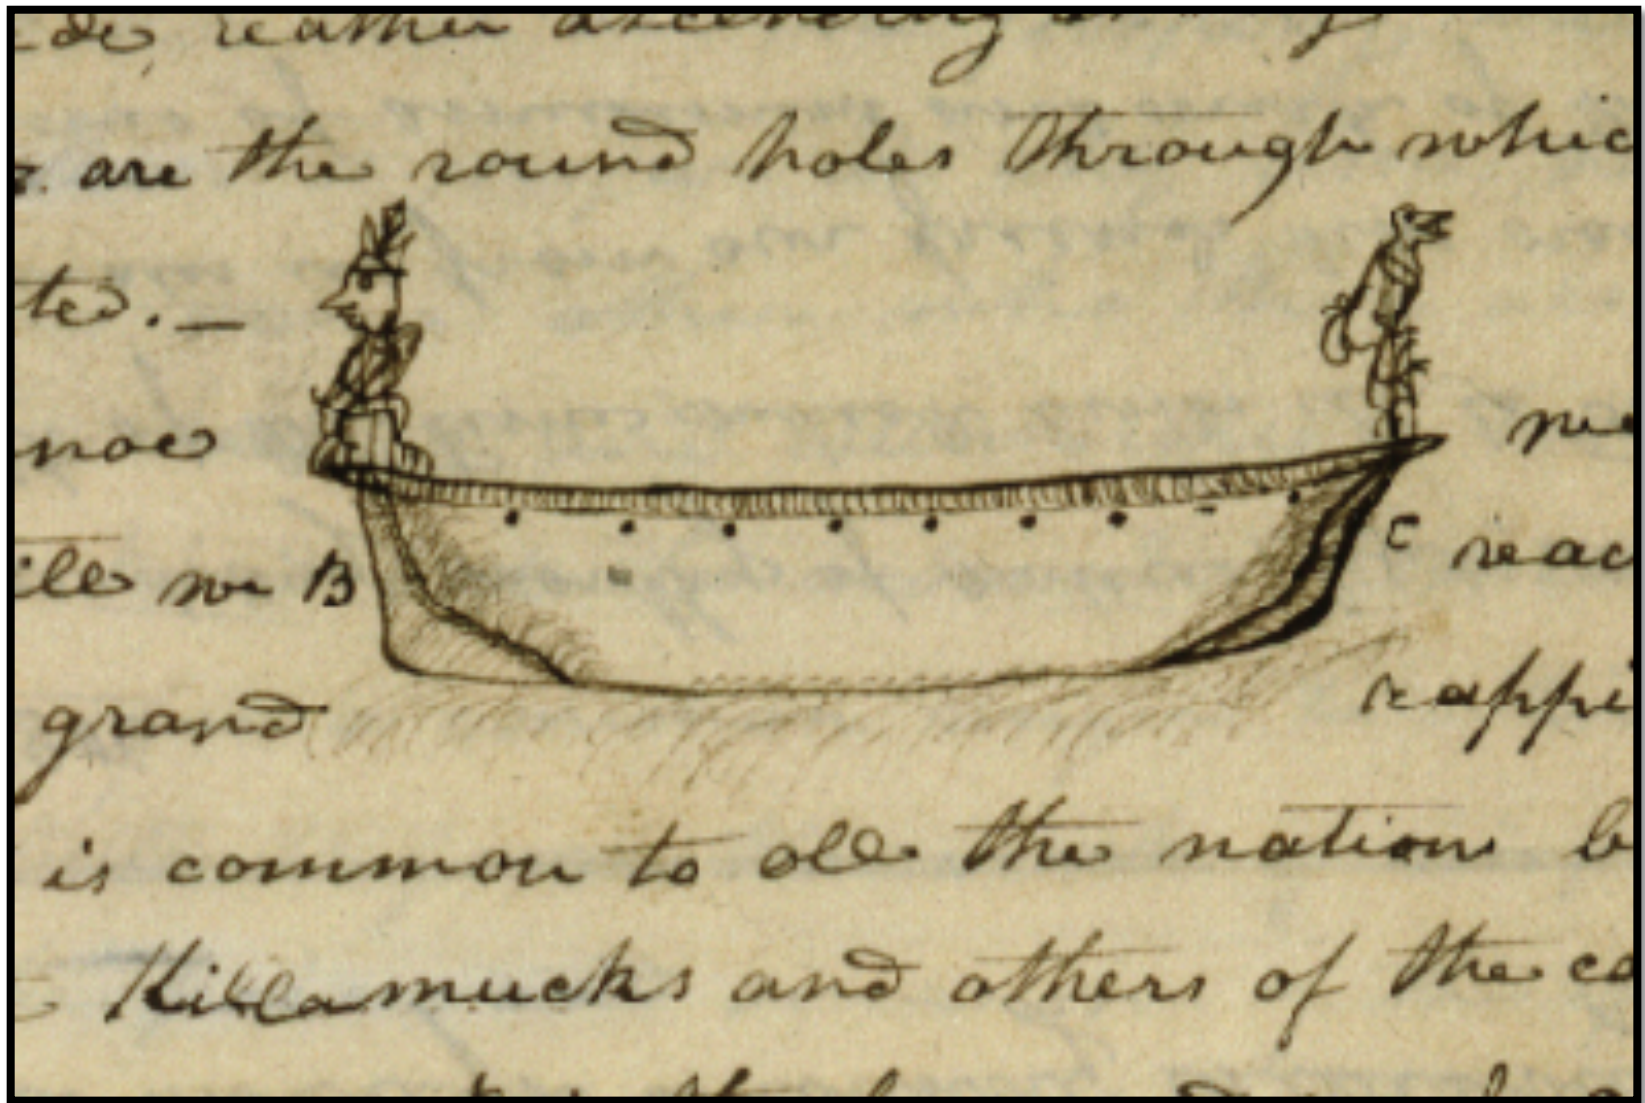 reather ascending
are the round holes through whic
ted. —
noe
B C reac
grand rappi
is common to all the nation b
Killamucks and others of the co